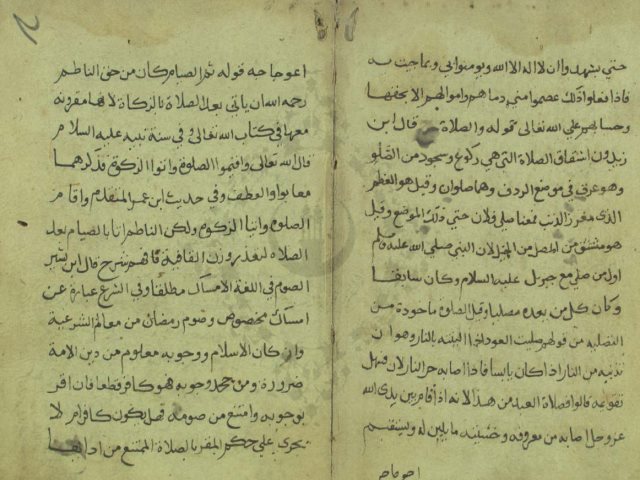 حتي يشهدوا ان لا اله الا الله ويومنوا بي وبما جيت به
فاذا فعلوا ذلك عصموا مني دماهم واموالهم الا بحقها
وحسابهم علي الله تعالى قوله والصلاة قال ابن
زيدون اشتقاق الصلاة التي هي ركوع وسجود من الصلو
وهو عرق في موضع الردف وهما صلوان وقيل هو العظم
الذي مغرز الذنب فمعنا صلى فلان حني ذلك الموضع وقيل
هو مشتق من المصل من الخيل لان النبي صلي الله عليه وسلم
اول من صلي مع جبريل عليه السلام وكان سابقا
وكان كل من بعده مصليا وقيل الصلوة ماخوذة من
التصليه من قولهم صليت العود اذا الينته بالنار وهو ان
تدنيه من النار اذا كان يابسا فاذا اصابه حر النار لان فسهل
تقويمه قالوا فصلاة العبد من هذا لانه اذا قام بين يدي الله
عز وجل اصابه من معروفه وخشيته ما يلين له ويستقيم
اعوجاجه
اعوجاجه قوله ثم الصيام كان من حق الناظم
رحمه الله ان ياتي بعد الصلاة بالزكاة لانها مقرونه
معها في كتاب الله تعالى وفي سنة نبيه عليه السلام
قال الله تعالى واقيموا الصلوة واتوا الزكوة فذكرهما
معا بواو العطف وفي حديث ابن عمر المتقدم واقام
الصلوة وايتا الزكوة ولكن الناظم اتا بالصيام بعد
الصلاه لتعذر وزن القافية فافهم شرح قال ابن بشير
الصوم في اللغة الامساك مطلقا وفي الشرع عبارة عن
امساك مخصوص وصوم رمضان من معالم الشرعية
واركان الاسلام ووجوبه معلوم من دين الامة
ضرورة ومن جحد وجوبه فهو كافر قطعا فان اقر
بوجوبه وامتنع من صومه فهل يكون كافرا م لا
يجري علي حكم المقر بالصلاة الممتنع من ادايها